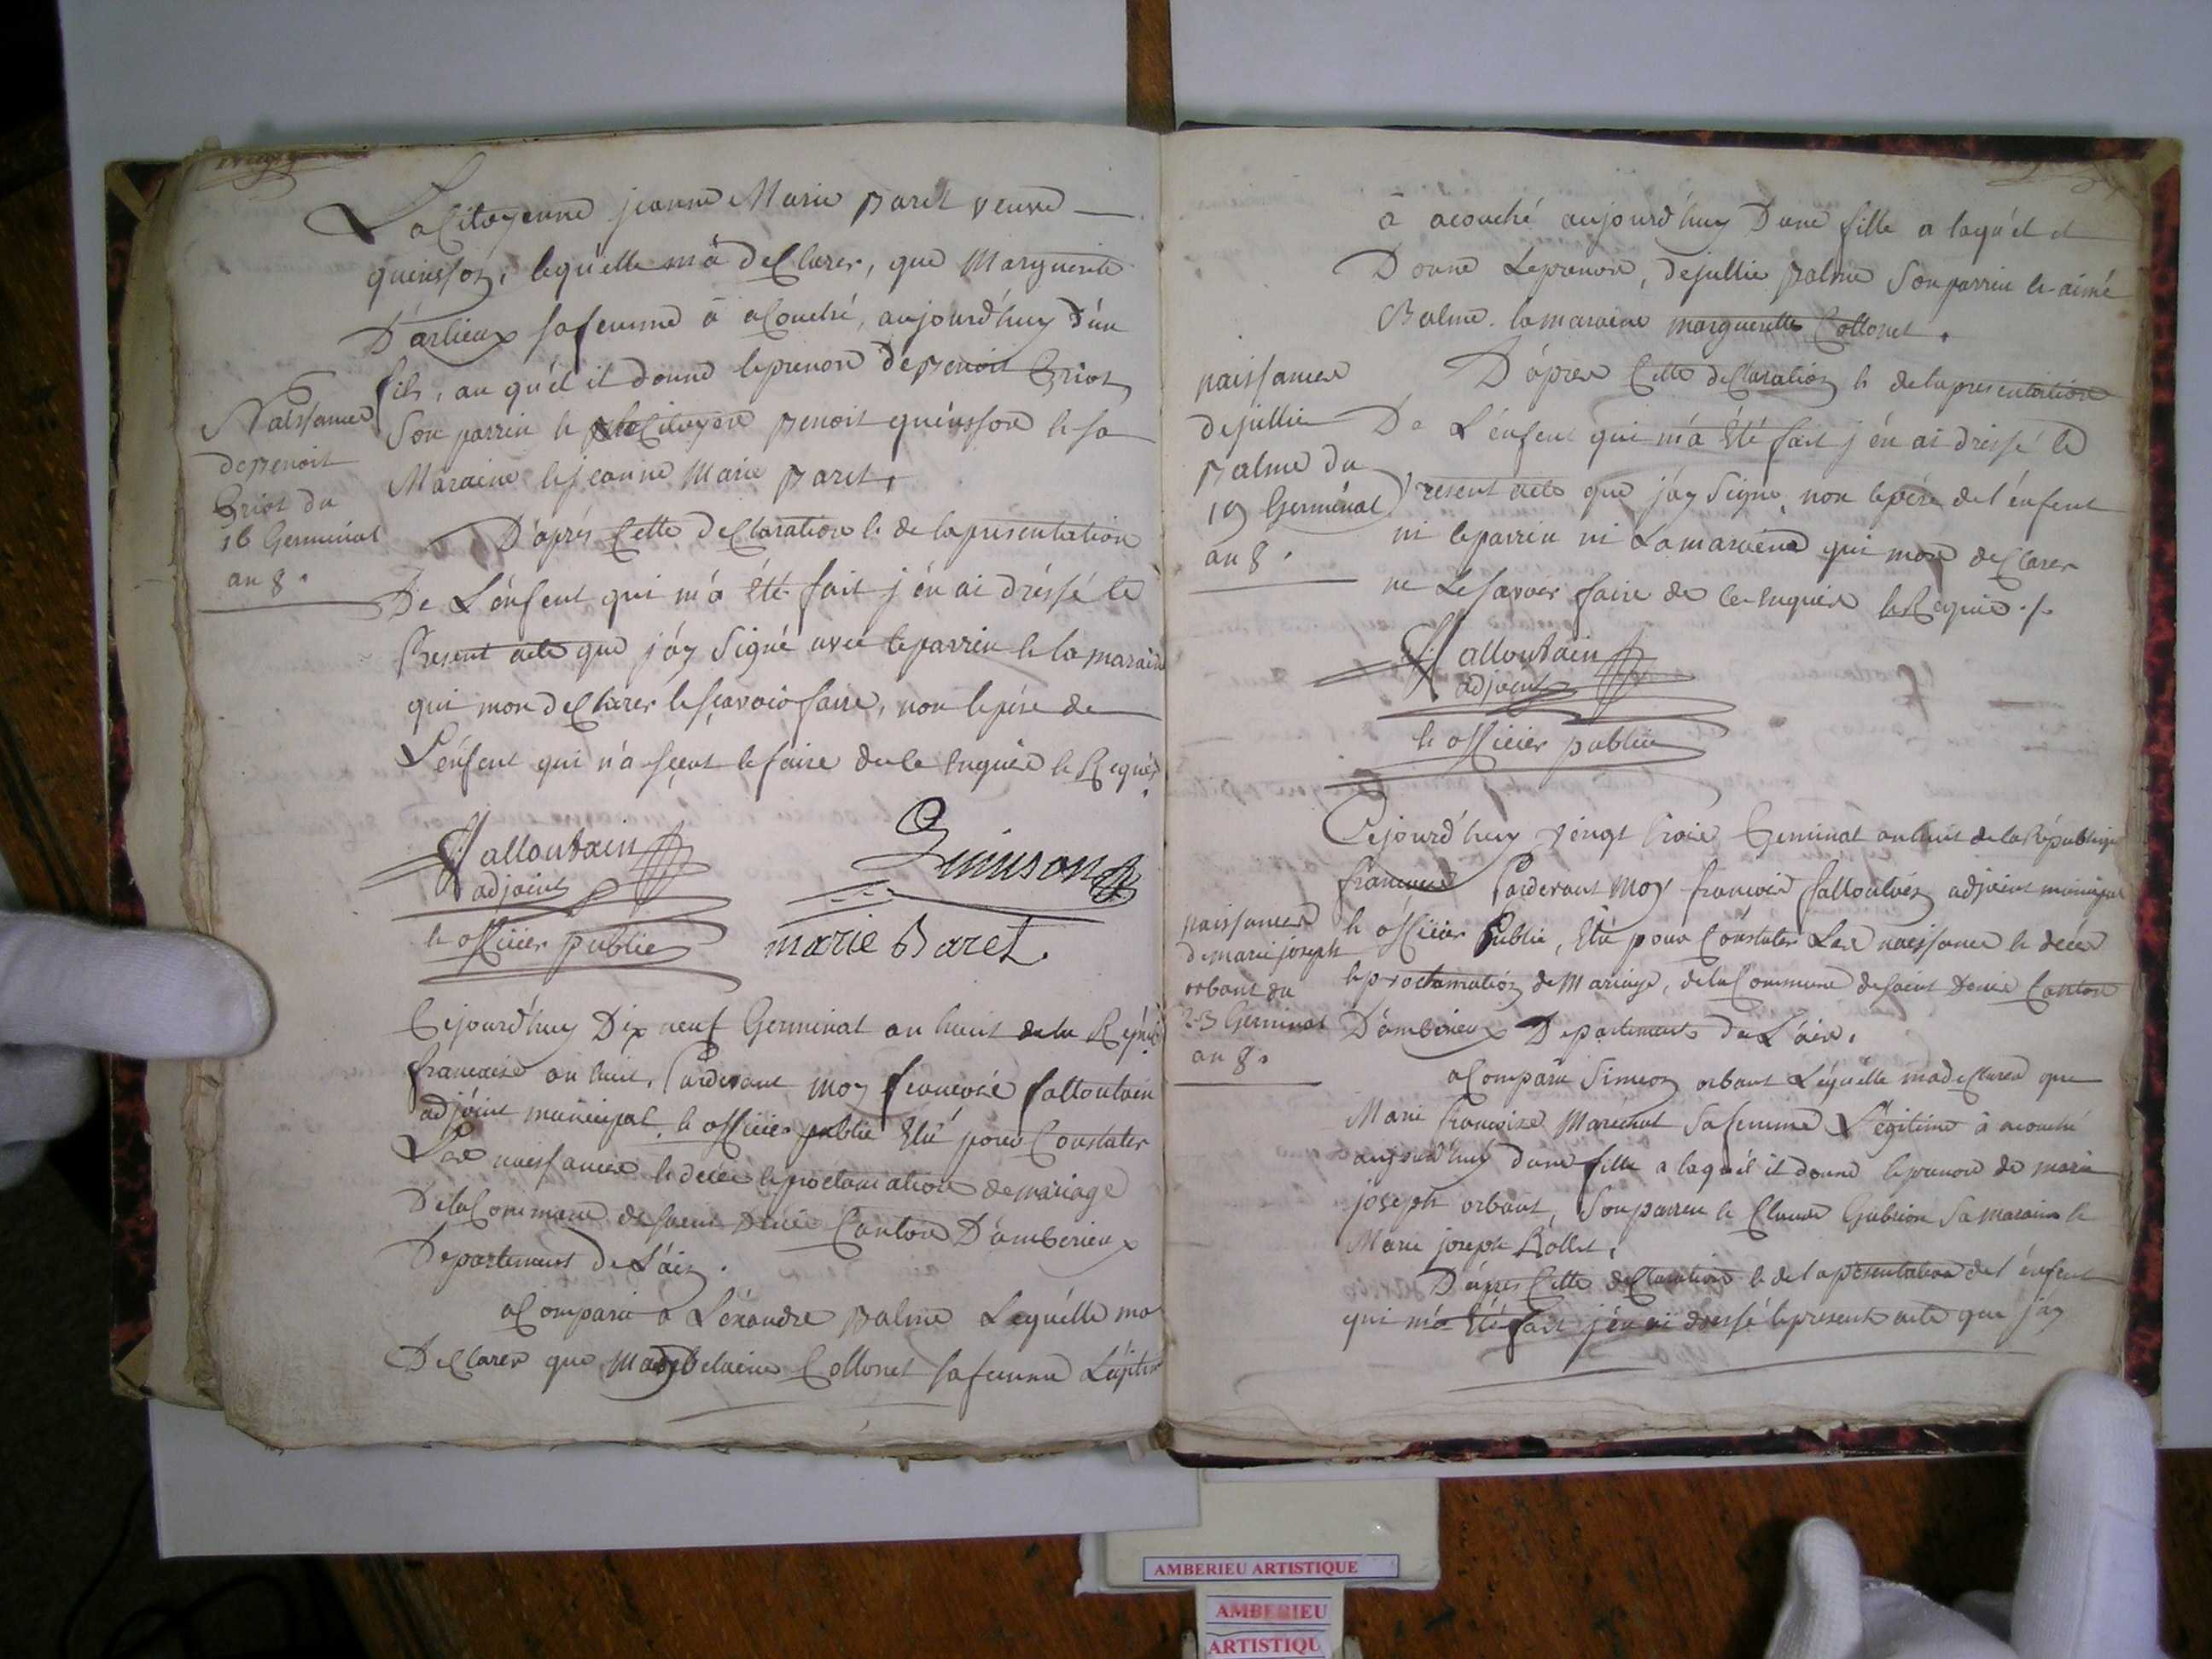 La Citoyenne jeanne Marie Baret veuve
quinsson, lequelle m'a declarer, que Marguerite
D'arlieux sa femme à acouché, aujourd'huy d'un
fils, au quél il donne le prenon de Benoit Griot
Son parrin le Citoyen Benoit quinsson le sa
Maraine le jeanne Marie Baret,
D'aprés Cette declaration le de la presentation
De L'énfent qui m'a été fait j'én ai dréssé le
Present acte que j'ay Signé avec le parrin le la maraine
qui mon declarer le sçavoir faire, non le pére de
L'énfent qui n'a sçeut le faire de le enquére le Requér
Naissance
de Benoit
Griot du
16 Germinal
an 8.
fallouvain
adjoint
le officier public
Quinson
marie Baret.
Cejourd'huy Dix neuf Germinal an huit de la Répub
francaise an huit, Pardevant moy francois fallouvain
adjoint municipal, le officier public élu pour Constater
Les naissances le décés le proclamation de mariage
De la Commune de saint Denis Canton D'amberieux
Departement de L'ain.
a Comparu a Léxandre Balme Lequélle ma
Declarer que Madelaine Collonet sa femme Légitim
à acouché aujourd'huy D'une fille a laquél il
Donne Le prenon, de jullie Balme Son parrin le aimé
Balme. la maraine marguerite Collonet.
naissance
de jullie
Balme du
19 Germinal
an 8.
D'áprés Cette declaration le de la presentation
De L'énfent qui m'a été fait j'én ai dréssé le
Present acte que j'ay Signé, non le pére de l'énfent
ni le parrin ni La maraine qui mon declarer
ne Le savoir faire de le enquére le Requie ./.
fallouvain
adjoint
le officier public
Cejourd'huy vingt trois Germinal an huit de la Républiq
francaise Pardevant Moy francois fallouvain adjoint municipal
le officier Public, élu pour Constater Les naissance le décés
le proclamation de Mariage, de la Commune de saint Denis Canton
D'amberieux Departement de L'ain.
naissance
de marie joseph
orbant du
23 Germinal
an 8.
a Comparu Simeon orbant Léquélle ma declarer que
Marie francoise Marechal Sa femme Légitime à acouché
aujourd'huy d'une fille a laquél il donne le prenon de marie
joseph orbant, Son parrin le Claude Gabrion Sa maraine le
Marie joseph Rollet,
D'aprés Cette declaration le de la presentation de l'énfent
qui m'á été fait j'én ai dréssé le present acte que j'ay
AMBERIEU ARTISTIQUE
AMBERIEU
ARTISTIQU